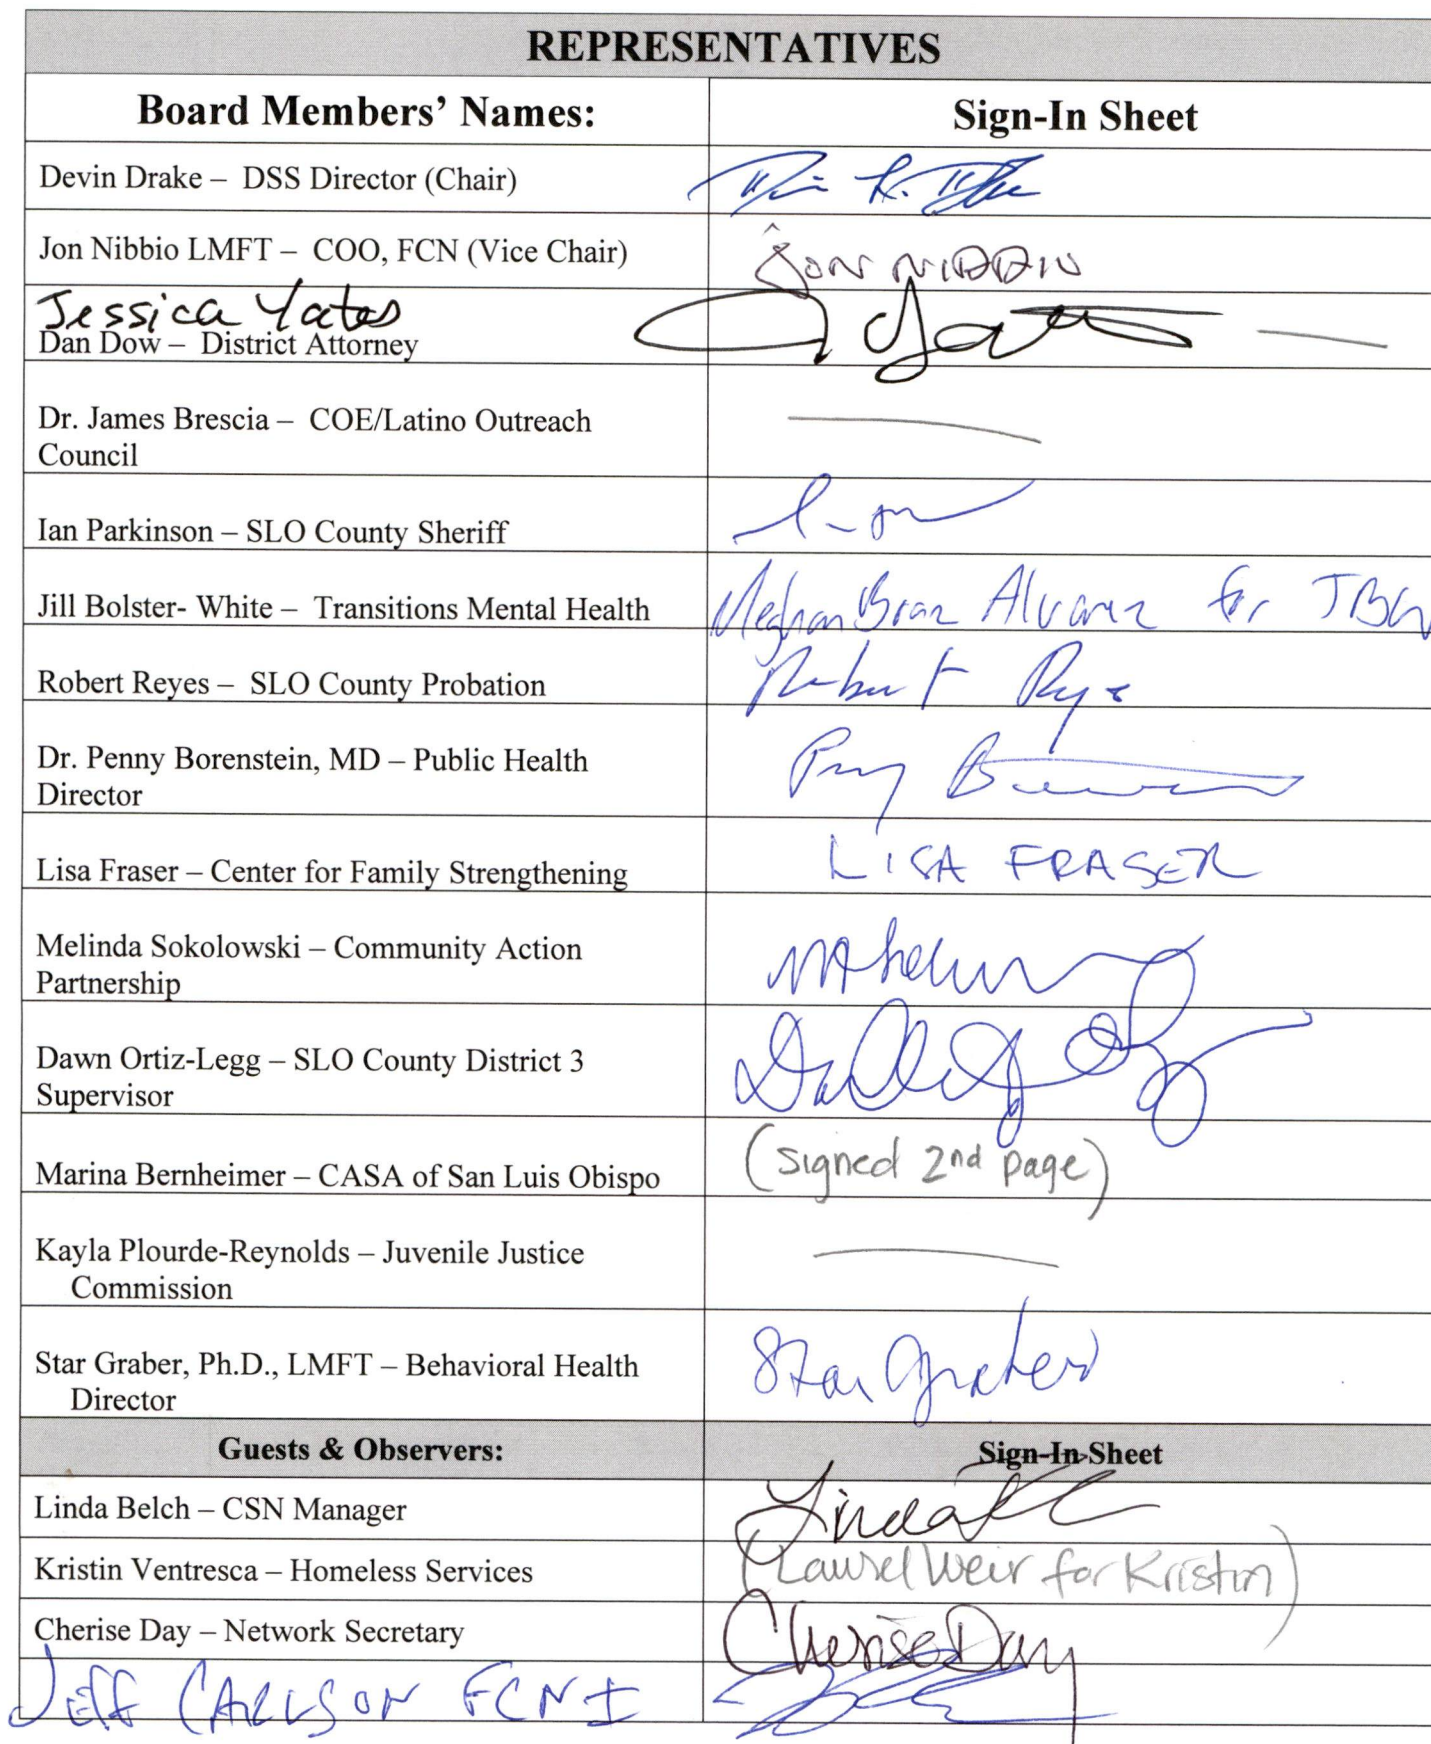 REPRESENTATIVES
Board Members' Names: Sign-In Sheet
Devin Drake – DSS Director (Chair)
Jon Nibbio LMFT – COO, FCN (Vice Chair) JON NIBBIO
Jessica Yates
Dan Dow – District Attorney J Yates
Dr. James Brescia – COE/Latino Outreach
Council
Ian Parkinson – SLO County Sheriff
Jill Bolster- White – Transitions Mental Health Meghan Alvarez for JBW
Robert Reyes – SLO County Probation Robert Reyes
Dr. Penny Borenstein, MD – Public Health
Director
Lisa Fraser – Center for Family Strengthening LISA FRASER
Melinda Sokolowski – Community Action
Partnership
Dawn Ortiz-Legg – SLO County District 3
Supervisor
Marina Bernheimer – CASA of San Luis Obispo (signed 2nd page)
Kayla Plourde-Reynolds – Juvenile Justice
Commission
Star Graber, Ph.D., LMFT – Behavioral Health Star Graber
Director
Guests & Observers: Sign-In Sheet
Linda Belch – CSN Manager Linda
Kristin Ventresca – Homeless Services (Laurel Weir for Kristin)
Cherise Day – Network Secretary Cherise Day
Jeff CARLSON FCNI